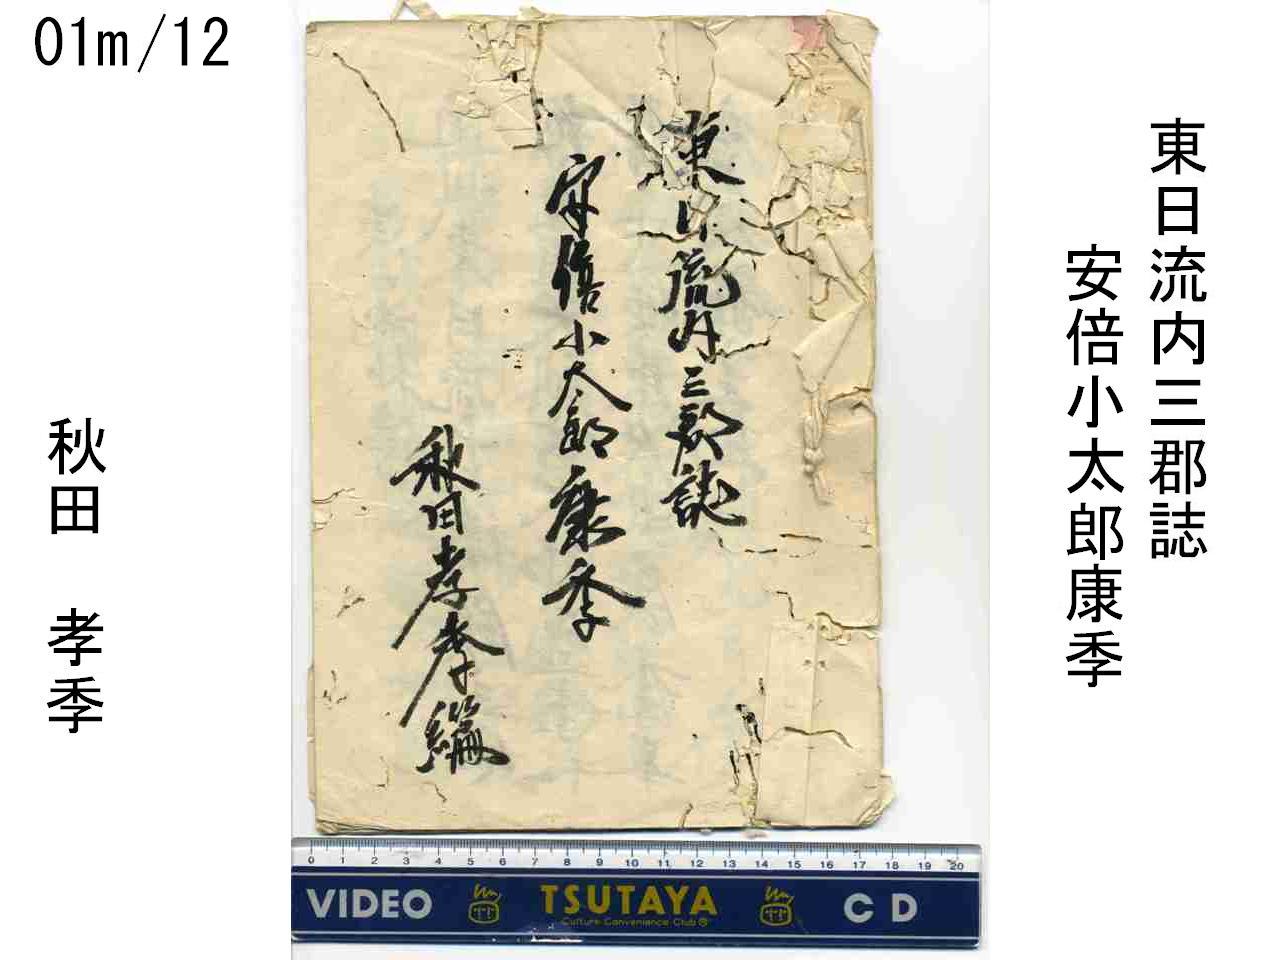 01m/12
東日流内三郡誌
安倍小太郎康季
秋田 孝季
東日流内三郡誌
安倍小太郎康季
秋田孝季編
0 1 2 3 4 5 6 7 8 9 10 11 12 13 14 15 16 17 18 19 20
VIDEO TSUTAYA CD
Culture Convenience Club®